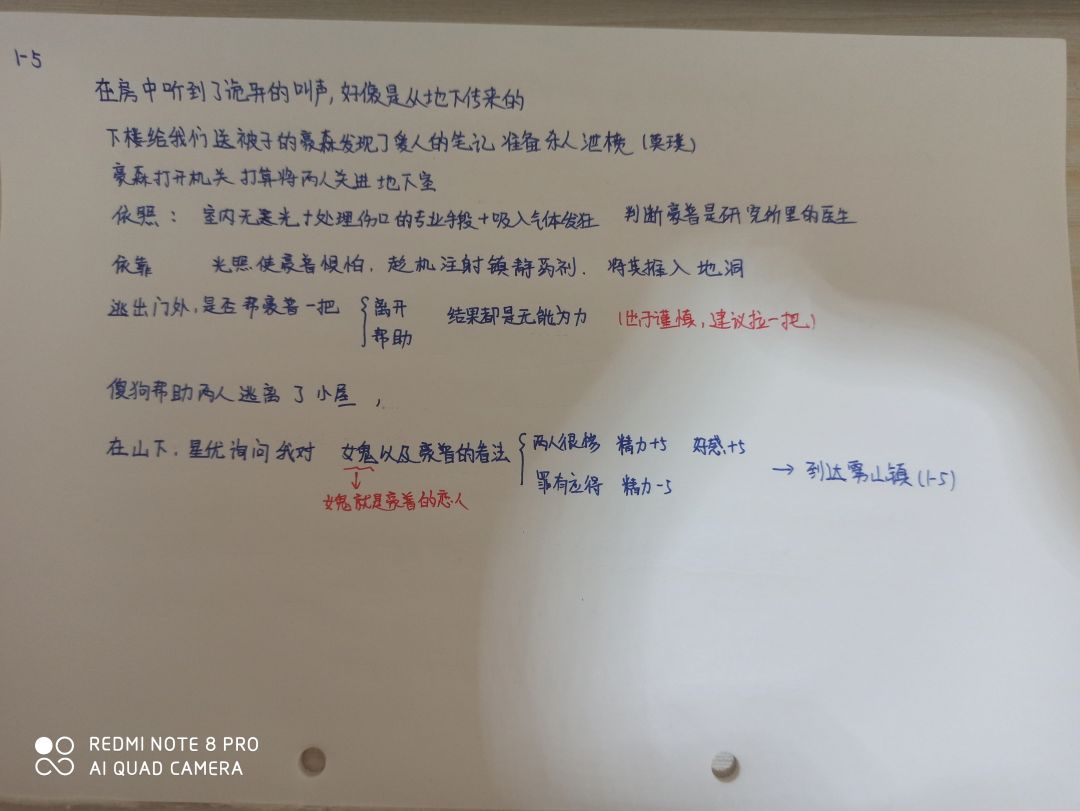 1-5
在房中听到了诡异的叫声,好像是从地下传来的
下楼给我们送被子的豪森发现了爱人的笔记 准备杀人泄愤 (莫璞)
豪森打开机关 打算将两人关进地下室
依照: 室内无遮光+处理伤口的专业手段+吸入气体发狂 判断豪普是研究所里的医生
依靠 光照使豪普惧怕, 趁机注射镇静药剂. 将其推入地洞
逃出门外,是否帮豪普一把 { 离开 帮助 结果都是无能为力 (出于谨慎,建议拉一把)
傻狗帮助两人逃离了小屋,
在山下,星优询问我对 女鬼以及豪普的看法 { 两人很惨 精力+5 好感+5
罪有应得 精力-5 → 到达雾山镇(1-5)
女鬼就是豪普的恋人
REDMI NOTE 8 PRO
AI QUAD CAMERA